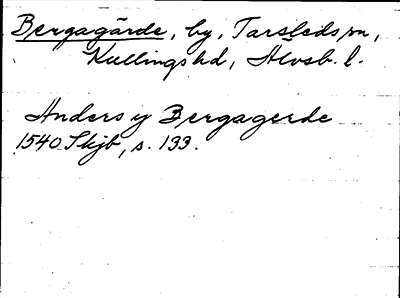 Bergagärde, by, Tarsledssn,
Kullingshd, Älvsb. l.
Anders y Bergagerde
1540 Skjb, s. 133.